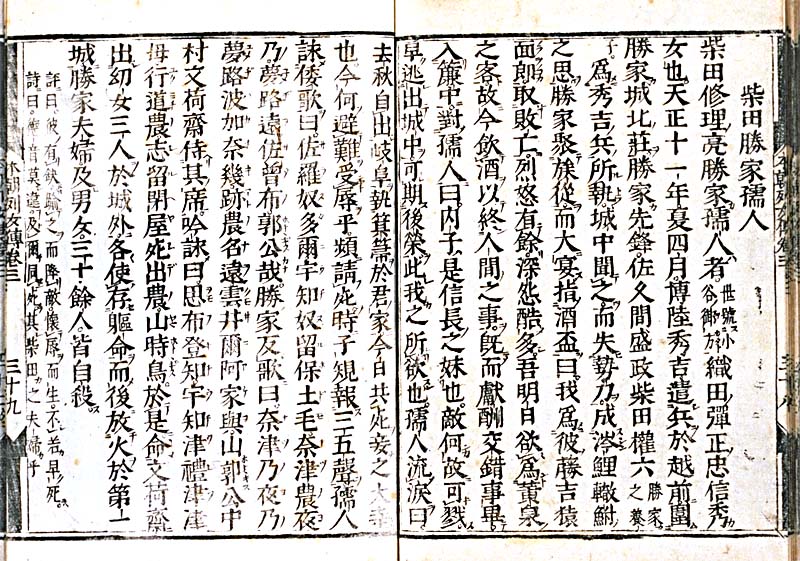 柴田勝家孺人
柴田修理亮勝家孺人者世號小谷御方織田彈正忠信秀
女也天正十一年夏四月博陸秀吉遣兵於越前圍
勝家城北莊勝家先鋒佐久間盛政柴田權六勝家之養
子爲秀吉兵所執城中聞之而失勢乃成涔鯉轍鮒
之思勝家聚族從而大宴指酒盃曰我爲彼藤吉猿
面郎取敗亡烈怒有餘深怨酷多吾明日欲爲黃泉
之客故今飲酒以終人間之事既而獻酬交錯事畢
入簾中對孺人曰内子是信長之妹也敵何故可戮
早逃出城中可期後榮此我之所欲也孺人流淚曰
去秋自出岐阜執箕箒於君家今日共死妾之大幸
也今何避難受辱乎頻請死時子規報三五聲孺人
詠倭歌曰佐羅奴多爾宇知奴留保土毛奈津農夜
乃夢路遠佐曾布郭公哉勝家反歌曰奈津乃夜乃
夢路波加奈幾跡農名遠雲井爾阿家與山郭公中
村文荷齋侍其席吟詠曰思布登知宇知津禮津津
毋行道農志留閇屋死出農山時鳥於是命文荷齋
出幼女三人於城外各使存軀命而後放火於第一
城勝家夫婦及男女三十餘人皆自殺
評曰彼有之而降敵懷辱而生不若早死
詩曰德音莫違及爾同死其柴田之夫婦乎
本朝列女傳卷三
三十九